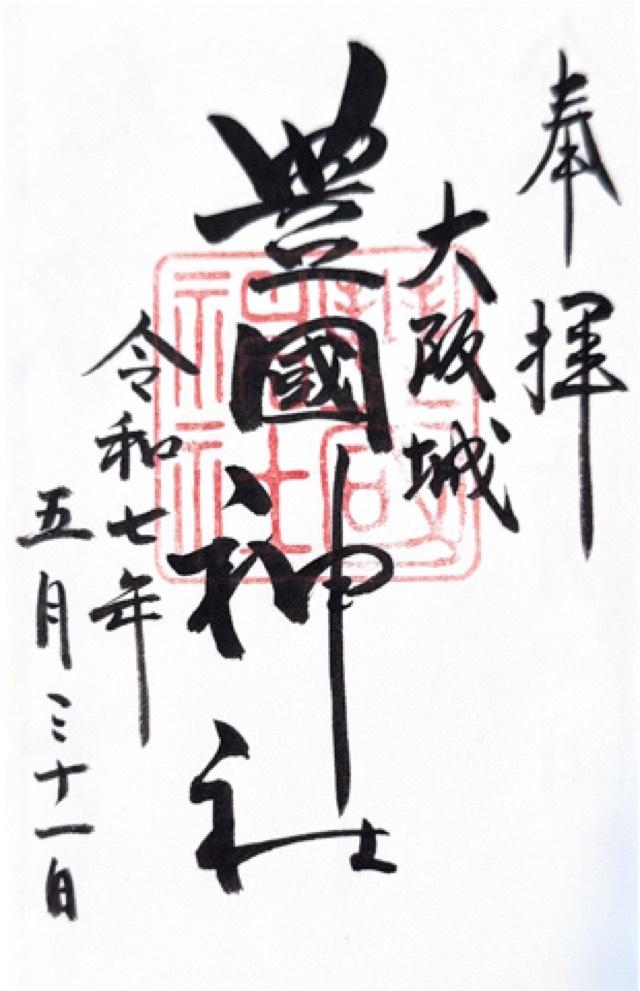 奉拝
大阪城
豊國神社
令和七年
五月三十一日